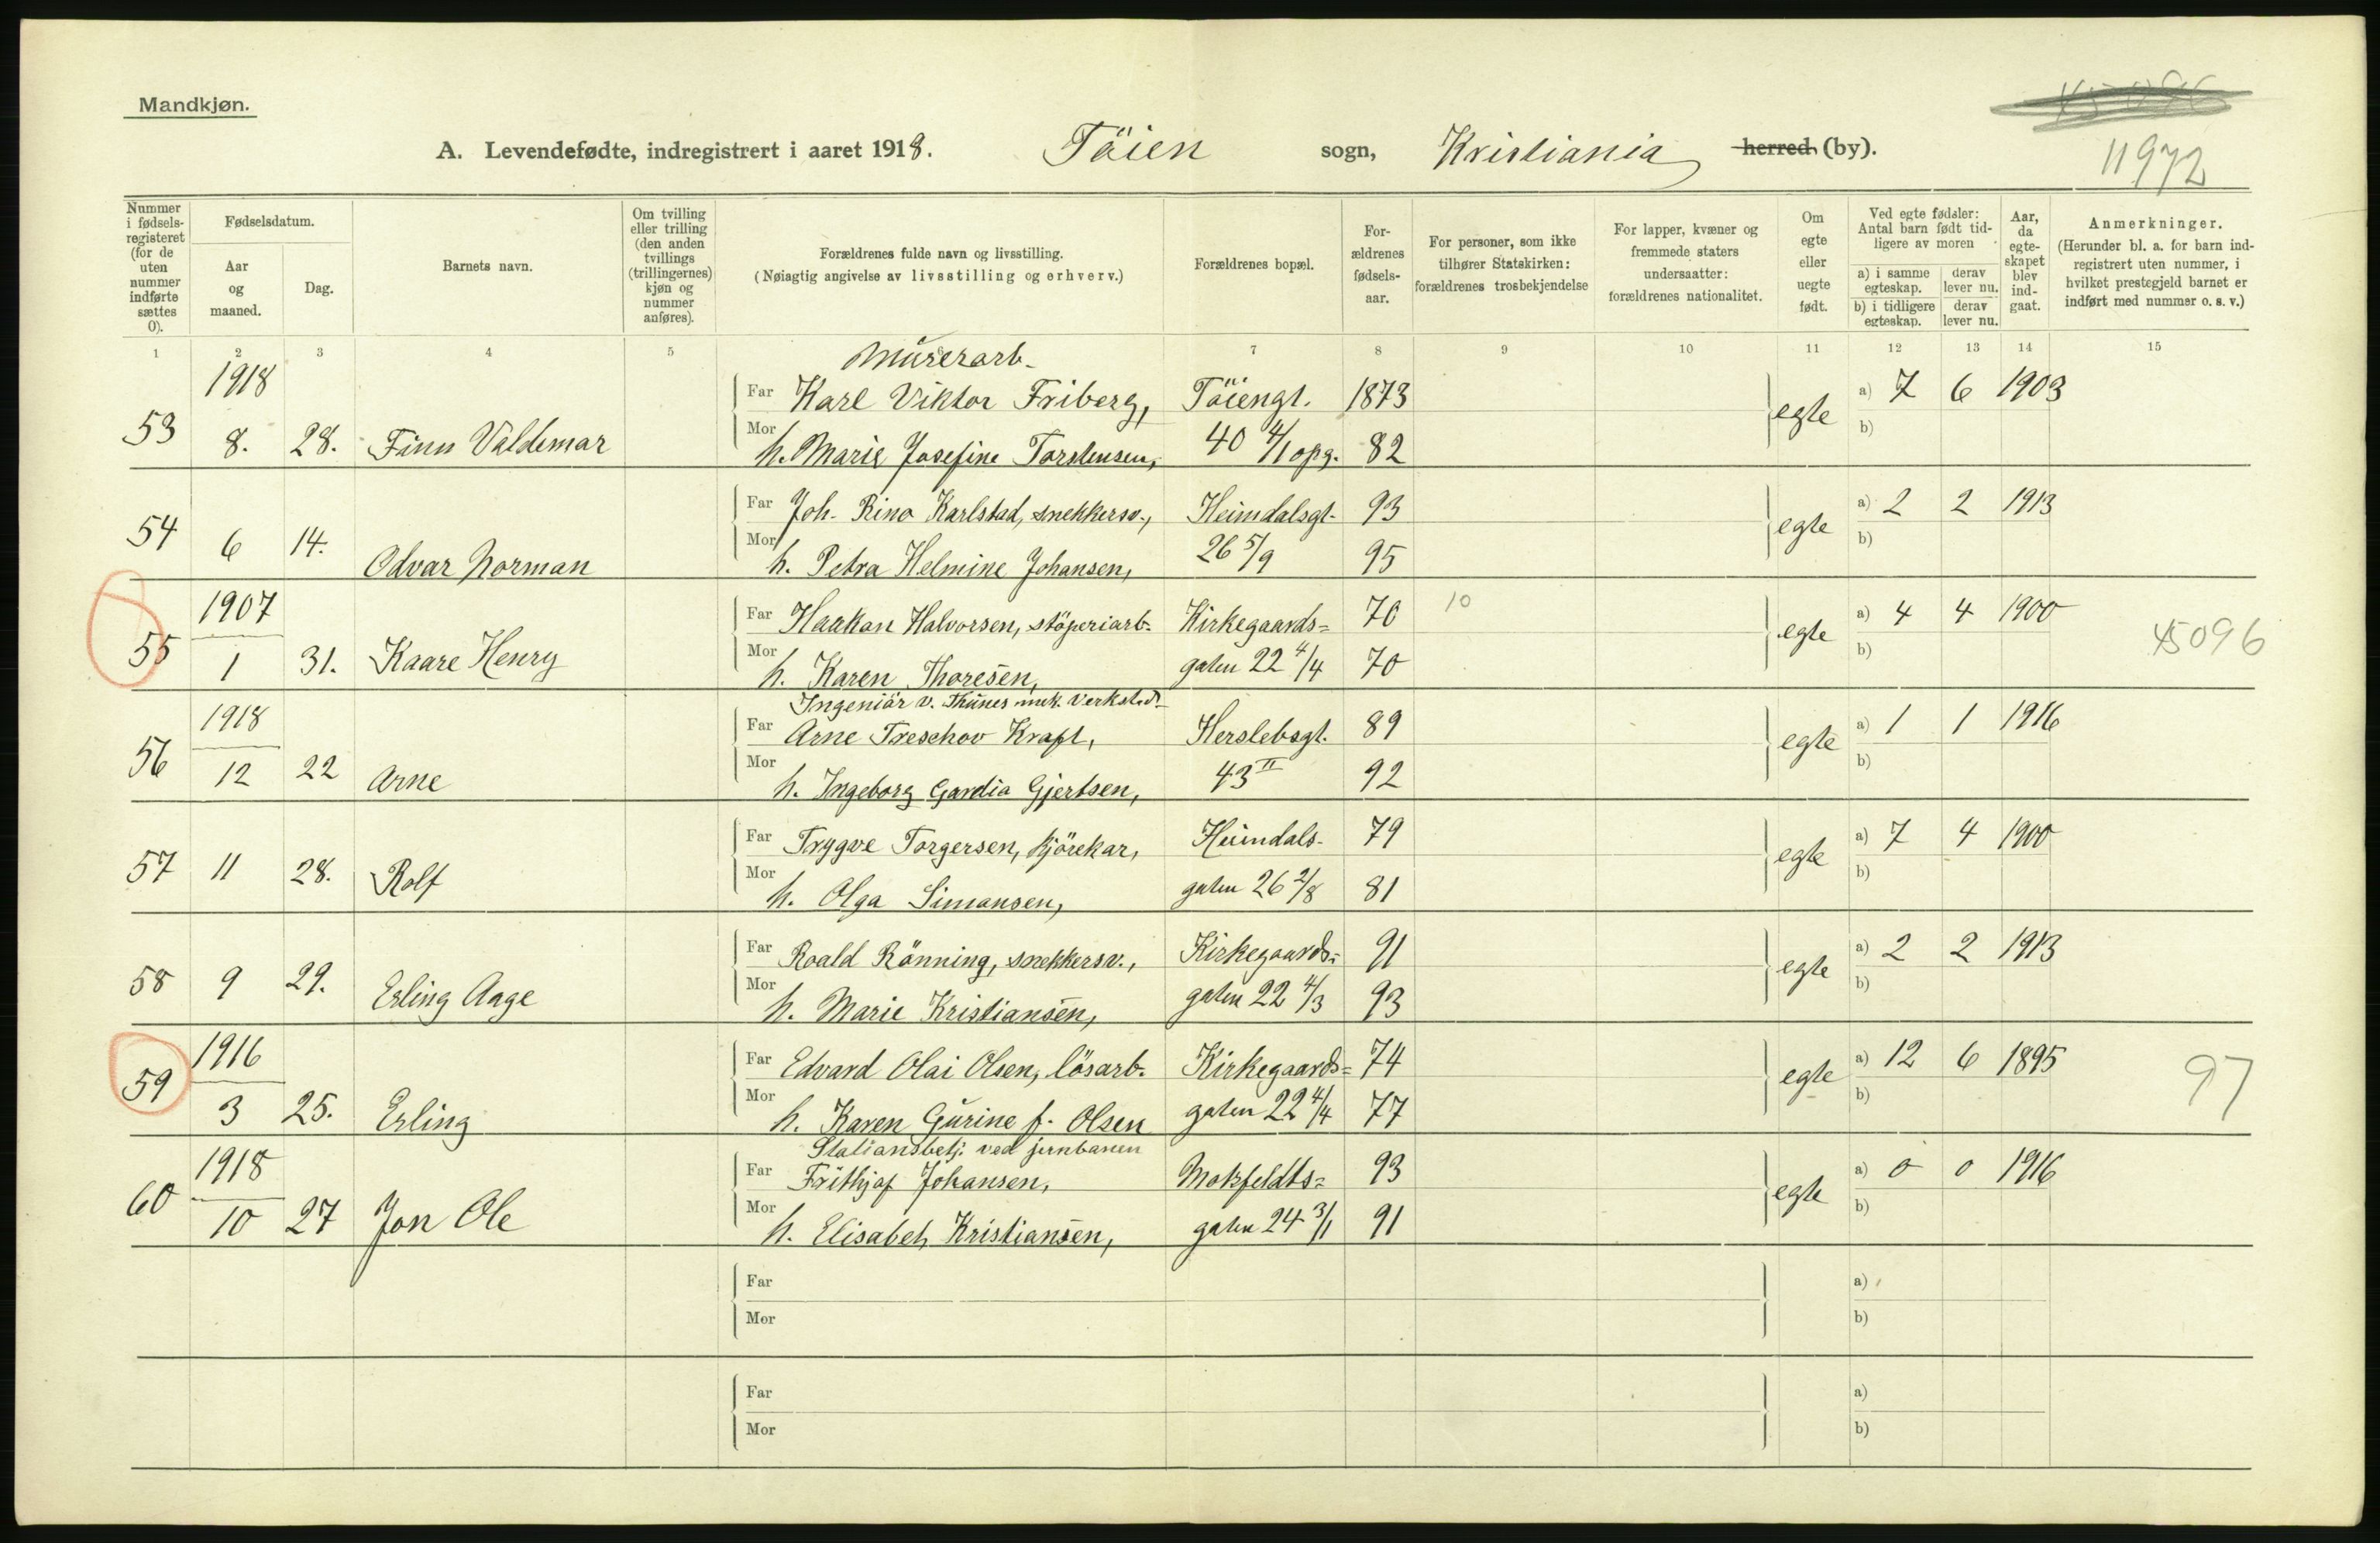 Mandkjøn.
A. Levendefødte, indregistrert i aaret 1918. Töien sogn, Kristiania herred (by).
11972
Nummer i fødsels-registeret (for de uten nummer indførte sættes 0).
Fødselsdatum.
Aar og maaned.
Dag.
Barnets navn.
Om tvilling eller trilling (den anden tvillings (trillingernes) kjøn og nummer anføres).
Forældrenes fulde navn og livsstilling.
(Nøiagtig angivelse av livsstilling og erhverv.)
Forældrenes bopæl.
For-ældrenes fødsels-aar.
For personer, som ikke tilhører Statskirken: forældrenes trosbekjendelse
For lapper, kvæner og fremmede staters undersaatter: forældrenes nationalitet.
Om egte eller uegte født.
Ved egte fødsler: Antal barn født tid-ligere av moren
a) i samme egteskap. derav lever nu.
b) i tidligere egteskap. derav lever nu.
Aar, da egte-skapet blev ind-gaat.
Anmerkninger.
(Herunder bl. a. for barn ind-registrert uten nummer, i hvilket prestegjeld barnet er indført med nummer o. s. v.)
1 2 3 4 5 6 7 8 9 10 11 12 13 14 15
1918 Murerarb.
Far Karl Viktor Friberg, Töiengt. 1873 egte a) 7 6 1903
53 8. 28. Finn Valdemar Mor h. Marie Josefine Torstensen, 40 4/1 opg. 82 b)
Far Joh. Rino Karlstad, snekkersv., Heimdalsgt. 93 egte a) 2 2 1913
54 6 14. Odvar Norman Mor h. Petra Helmine Johansen, 26 5/9 95 b)
1907 Far Haakon Halvorsen, stöperiarb. Kirkegaards= 70 10 egte a) 4 4 1900
55 1 31. Kaare Henry Mor h. Karen Thoresen, gaten 22 4/4 70 b) 45096
1918 Ingeniör v. Thunes mek. Verksted.
Far Arne Treschow Kraft, Herslebsgt. 89 egte a) 1 1 1916
56 12 22 Arne Mor h. Ingeborg Gardia Gjertsen, 43 II 92 b)
Far Trygve Torgersen, kjörekar, Heimdals- 79 egte a) 7 4 1900
57 11 28. Rolf Mor h. Olga Simonsen, gaten 26 2/8 81 b)
Far Roald Rönning, snekkersv., Kirkegaards= 91 egte a) 2 2 1913
58 9 29. Erling Aage Mor h. Marie Kristiansen, gaten 22 4/3 93 b)
1916 Far Edvard Olai Olsen, lösarb. Kirkegaards= 74 egte a) 12 6 1895
59 3 25. Erling Mor h. Karen Gurine f. Olsen gaten 22 4/4 77 b) 97
1918 Stationsbetj. ved jernbanen
Far Frithjof Johansen, Motzfeldts= 93 egte a) 0 0 1916
60 10 27 Jon Ole Mor h. Elisabeth Kristiansen, gaten 24 3/1 91 b)
Far a)
Mor b)
Far a)
Mor b)